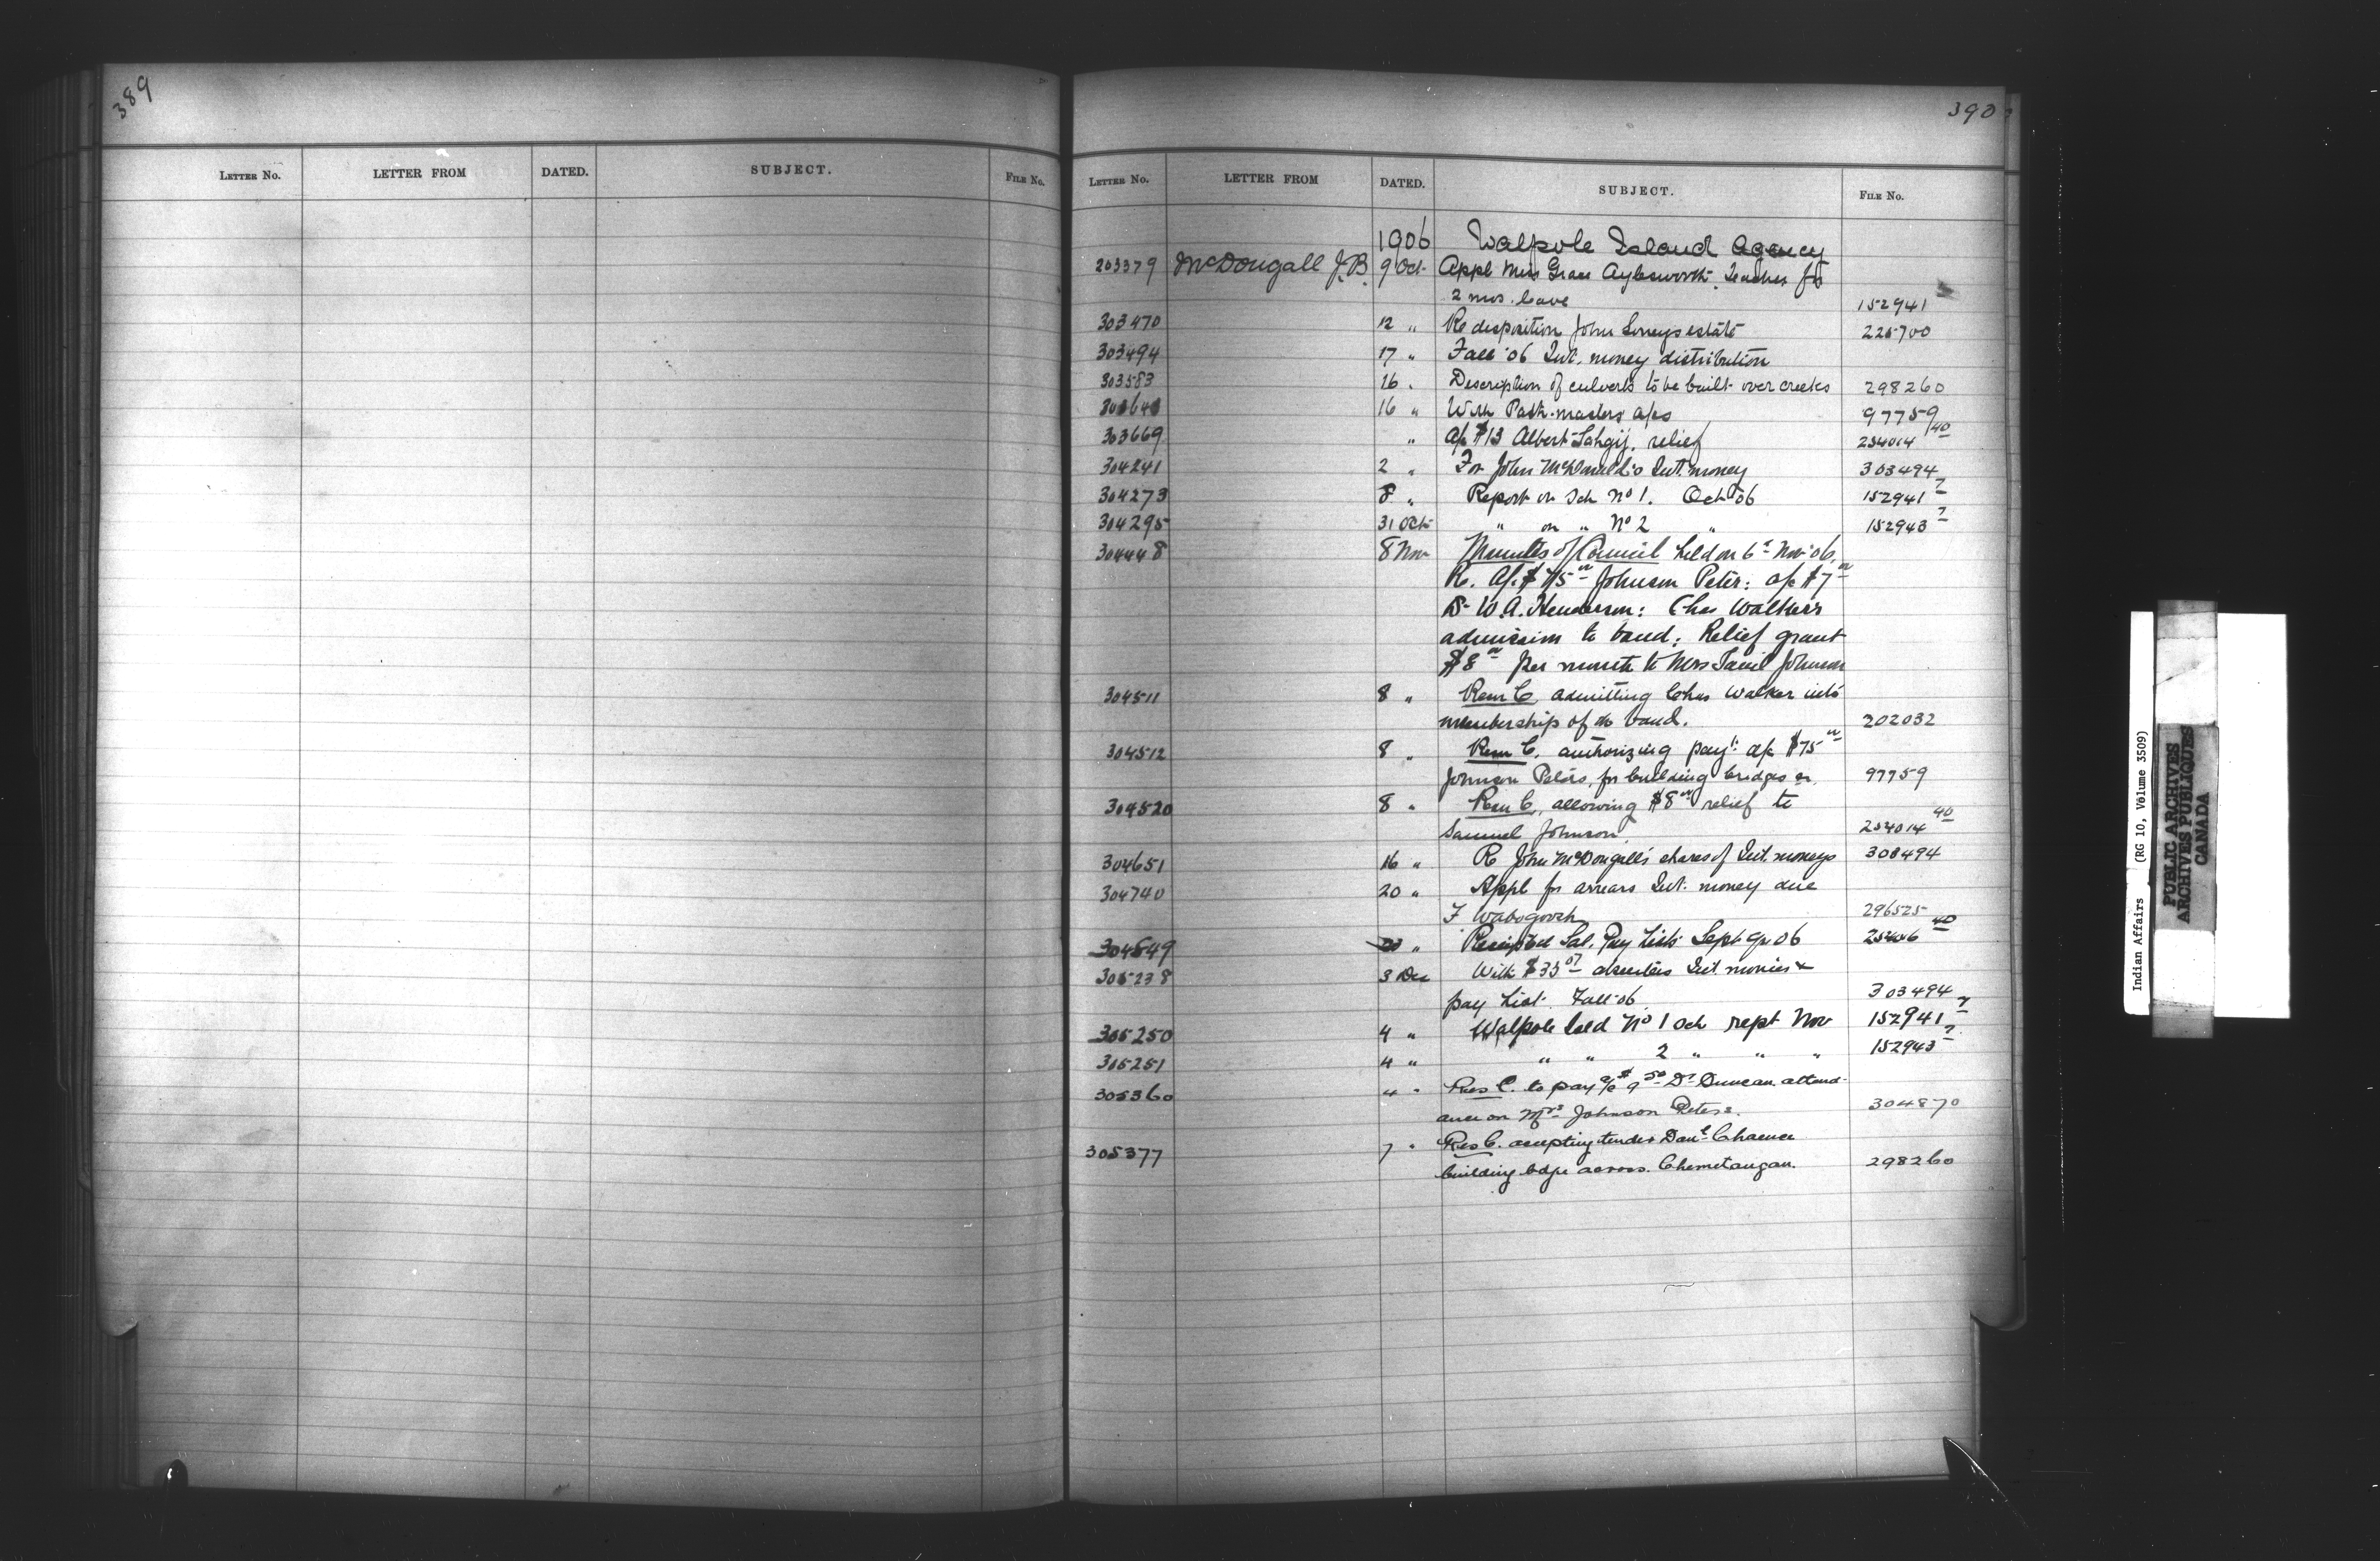 389
LETTER NO. LETTER FROM DATED. SUBJECT. FILE NO.
390
LETTER NO. LETTER FROM DATED. SUBJECT. FILE NO.
1906 Walpole Island Agency
203379 McDougall J.B. 9 Oct. Appl Miss Grace Aylesworth. Teacher for
2 mos. leave 152941
303470 12 " Re disposition John Soneys estate 225700
303494 17 " Fall '06 Int. money distribution
303583 16 . Description of culverts to be built over creeks 298260
16 " With Path-masters a/cs 97759
303669 " A/c $13 Albert relief 254014 40
304241 2 " For John McDonald's Int. money 303494
304273 8 " Report on Sch No 1. Oct 06 152941 7
304295 31 Oct " on " No 2 " 152943 7
304448 8 Nov Minutes of Council held on 6th Nov '06.
Re. A/c $75 00 Johnson Peter: a/c $7 00
Dr W.A. Henderson: Chas Walkers
admission to band: Relief grant
$8 00 per month to Mrs Saml Johnson
304511 8 " Resn C. admitting Chas Walker into
membership of the band. 202032
304512 8 " Resn C. authorizing payt: a/c $75 00
Johnson Peters, for building bridges &c. 97759
304520 8 " Resn C. allowing $8 00 relief to
Samuel Johnson. 254014 40
304651 16 " Re John McDougall's shares of Int. moneys 303494
304740 20 " Appl for arrears Int. money due
F Wabogoosh 296525
304849 20 " Receipted Sal. Pay Lists Sept qr. 06 40
305238 3 Dec With $35 07 absentees Int monies &
pay List. Fall '06. 303494
305250 4 " Walpole Isld No 1 Sch rept Nov 152941 7
305251 4 " " " 2 " " " 152943 7
305360 4 " Res C. to pay a/c $9 50 Dr Duncan attend-
ance on Mrs Johnson Peters. 304870
305377 7 " Res C. accepting tender Danl
building bdge across Chemetaugan. 298260
Indian Affairs (RG 10, Volume 3509)
PUBLIC ARCHIVES
ARCHIVES PUBLIQUES
CANADA